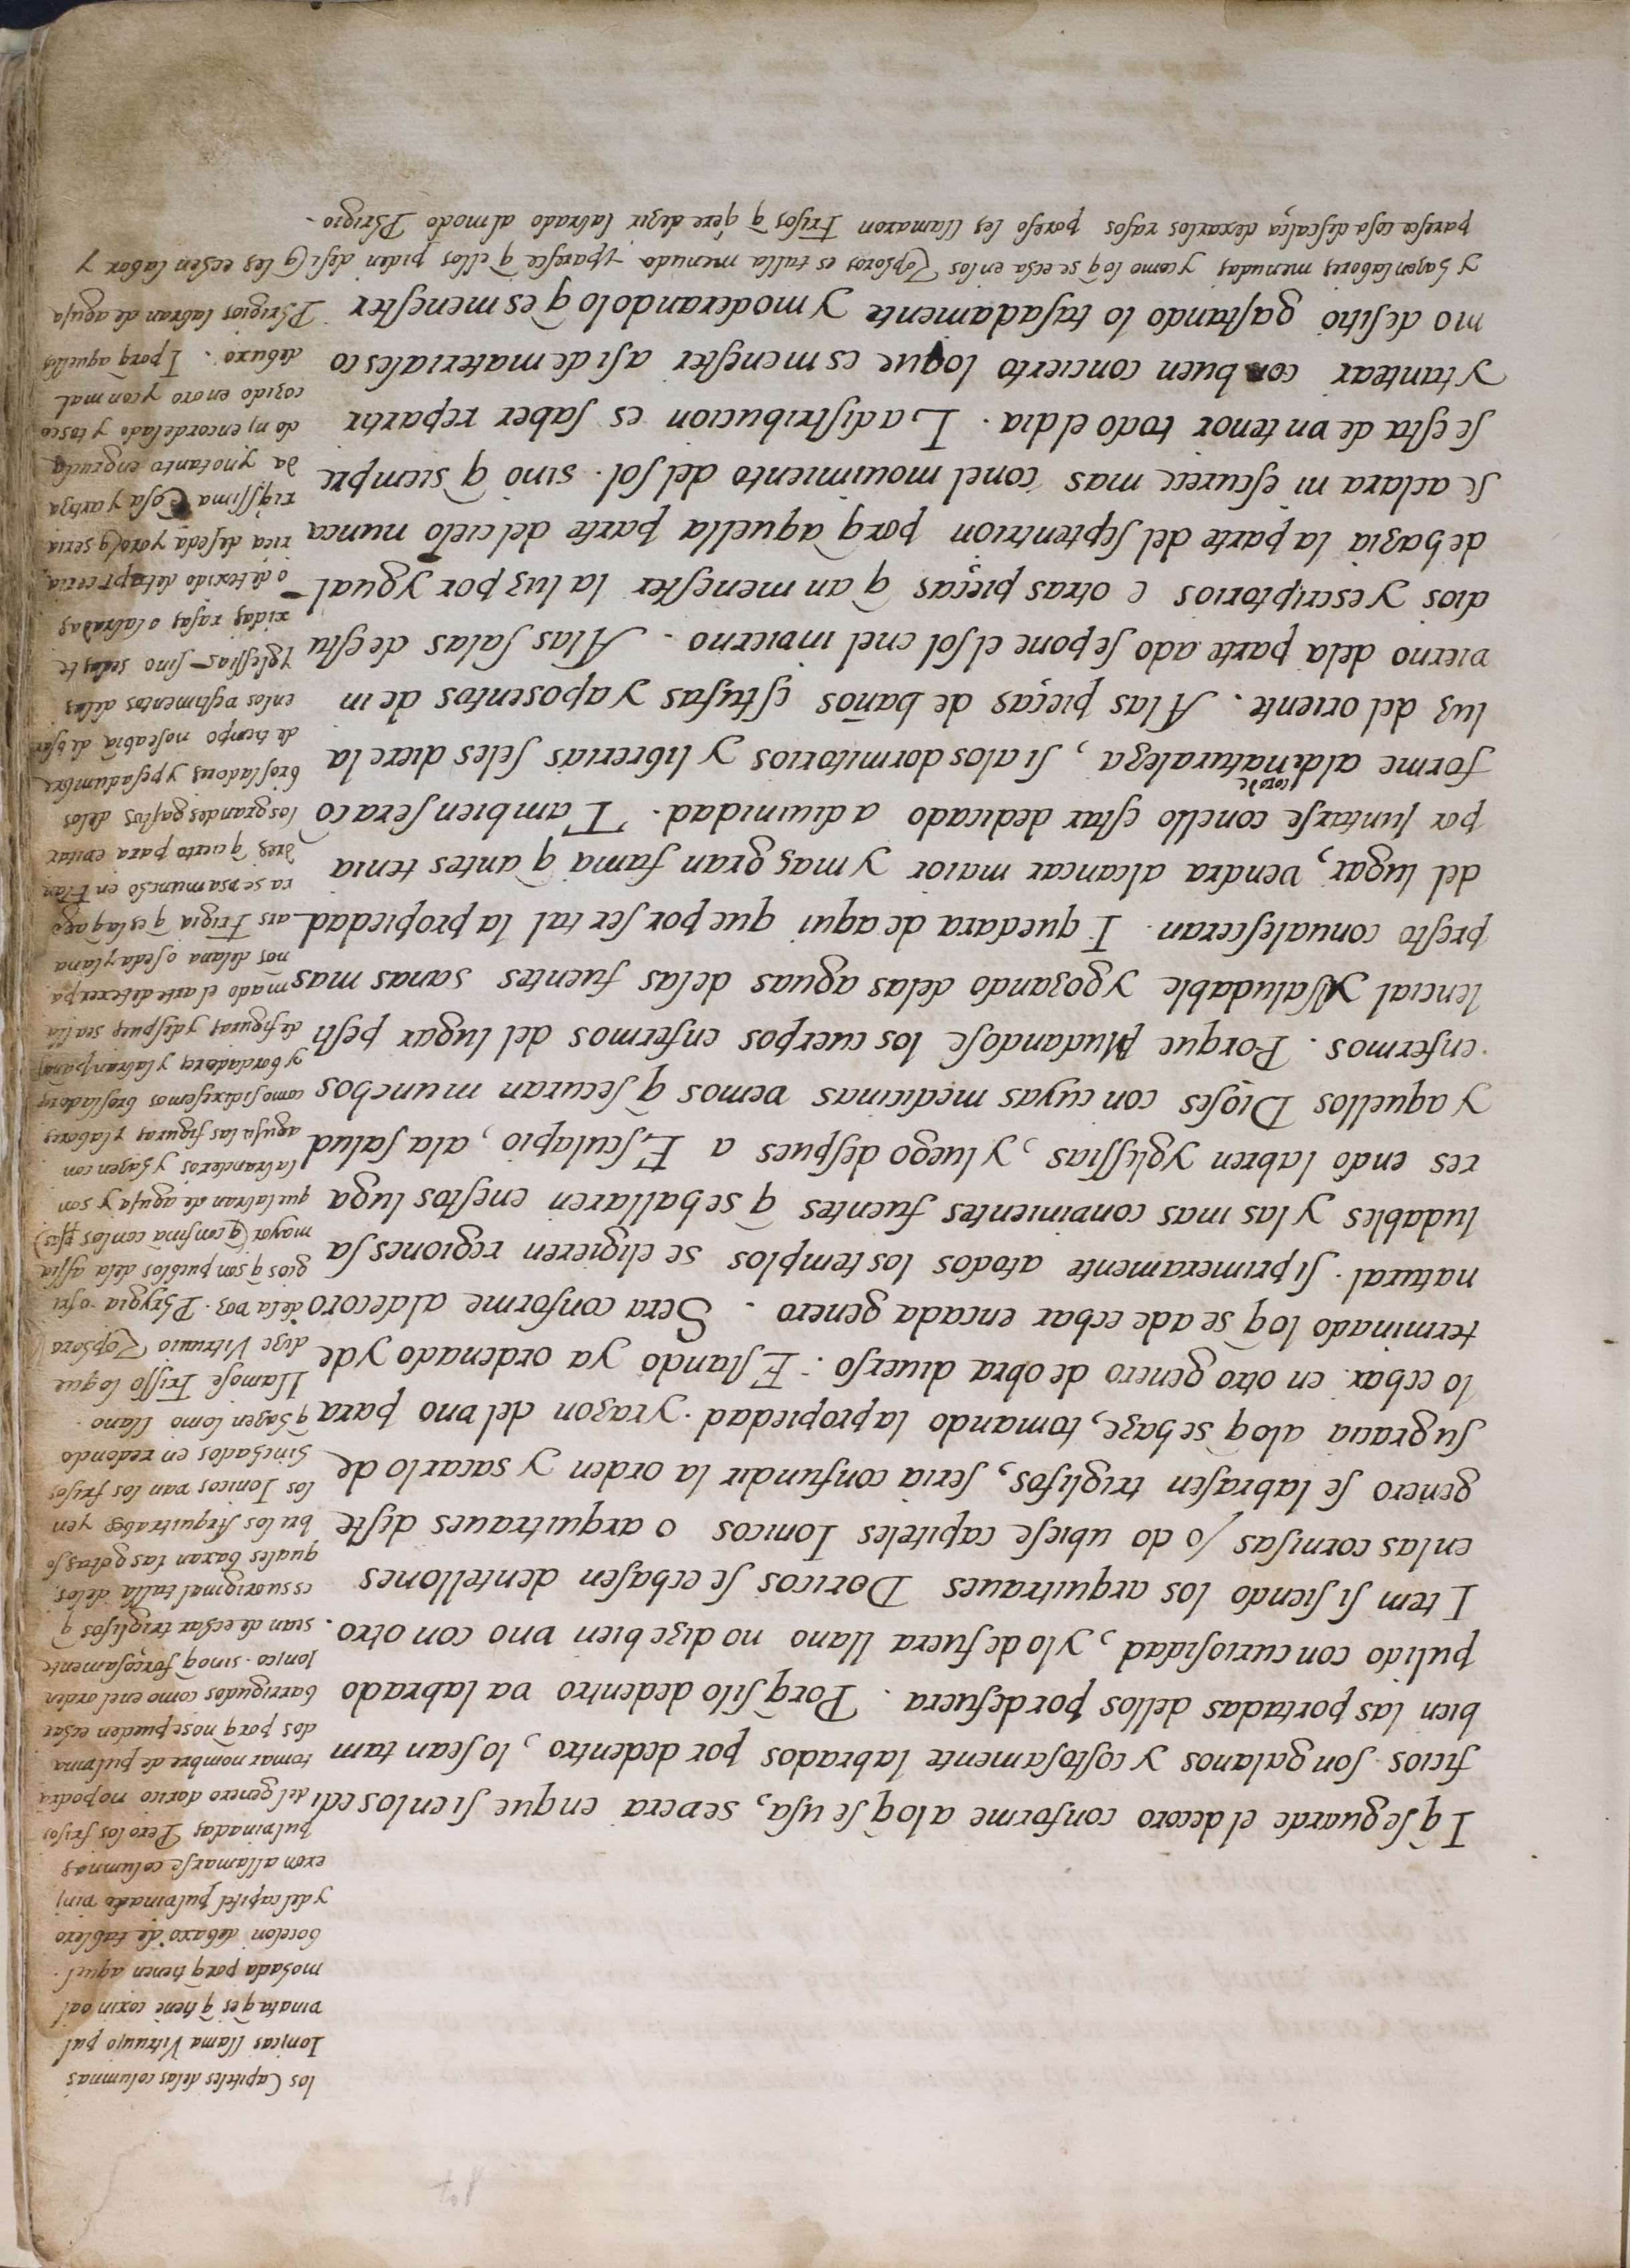 I q̃ se guarde el decoro conforme a loq̃ se usa, se vera enque si enlos edi
ficios son galanos y costosamente labrados por dedentro, lo sean tam
bien las portadas dellos por defuera. Porq̃ silo dedentro va labrado
pulido con curiosidad, y lo de fuera llano no dize bien vno con otro.
Item si siendo los arquitraues Doricos se echasen dentellones
enlas cornisas / o do ubiese capiteles Ionicos o arquitraues diste
genero se labrasen triglifos, seria confundir la orden y sacarlo de
su gracia aloq̃ se haze, tomando la propiedad y razon del vno para
lo echar en otro genero de obra diuerso. Estando ya ordenado y de
terminado loq̃ se ade echar encada genero. Sera conforme aldecoro
natural. si primeramente atodos los templos se eligieren regiones sa
ludables y las mas convinientes fuentes q̃ se hallaren enestos luga
res endo labren yglessias, y luego despues a Esculapio, ala salud
y aquellos Dioses con cuyas medicinas vemos q̃ se curan munchos
enfermos. Porque Mudandose los cuerpos enfermos del lugar pesti
lencial y saludable y gozando delas aguas delas fuentes sanas mas
presto conualesceran. I quedara de aqui que por ser tal la propiedad
del lugar, vendra alcancar maior y mas gran fama q̃ antes tenia
por juntarse conello estar dedicado a diuinidad. Tambien sera cõ
forme al decoro de naturaleza, si alos dormitorios y librerias seles diere la
luz del oriente. A las pieças de baños estufas y aposentos de in
vierno dela parte ado se pone el sol enel invierno. A las salas de estu
dios y escriptorios e otras pieças q̃ an menester la luz por ygual
de hazia la parte del septentrion porq̃ aquella parte del cielo nunca
se aclara ni escurece mas conel mouimiento del sol. sino q̃ siempre
se esta de vn tenor todo el dia. La distribucion es saber repartir
y tantear con buen concierto loque es menester asi de materiales co
mo de sitio gastando lo tasadamente y moderandolo q̃ es menester
los Capiteles delas columnas
Ionicas llama Vitruuio pul
vinata q̃ es q̃ tiene coxin o al
mohada porq̃ tienen aquel
bocelon debaxo de tablero
y del capitel pulvinado vini
eron allamarse columnas
pulvinadas Pero los frisos
del genero dorico no podra
tomar nombre de pulvina
dos porq̃ nose pueden echar
barrigudos como enel orden
Ionico. sinoq̃ forçosamente
sian de echar triglifos q̃
es su original talla delos
quales baxan las gotas so
bre los Arquitrabes yen
los Ionicos van los frisos
hinchados en redondo
q̃ hazen lomo llano
llamose Frisso loque
dize Vitruuio Zophoro
dela voz Phrygia o fri
gios q̃ son pueblos dela assia
mayor (q̃ confina conlos
que labran de aguja y son
labranderos y hazen con
aguja las figuras y labores
como si dixesemos brosladores
y bordadores y labran paños
de figuras y despues sea lla
mado el arte de texer pa
ños delana o seda y lana
ars Frigia q̃ es la q̃ ago
ra se vsa muncho en Flan
dres q̃ cierto para evitar
los grandes gastos delos
brosladores y pesadumbre
de tiempo no se abia de usar
enlos vestimentos delas
yglessias sino sedas te
xidas rasas o labradas
o de texido de tapiceria
rica de seda y oro (q̃ seria
riq̃ssima cosa y artiza
da y no tanto engrudo
do ni encordelado y tosco
cozido en oro y con mal
debuxo. I porq̃ aquellos
Phrigios labran de aguja
y hazen labores menudas y como loq̃ se echa enlos Zophoros es talla menuda y paresce q̃ ellos piden de si (q̃ les echen labor y
paresca cosa descalça dexarlos rasos por eso les llamaron Frisos q̃ q̃ere dezir labrado al modo Phrigio.